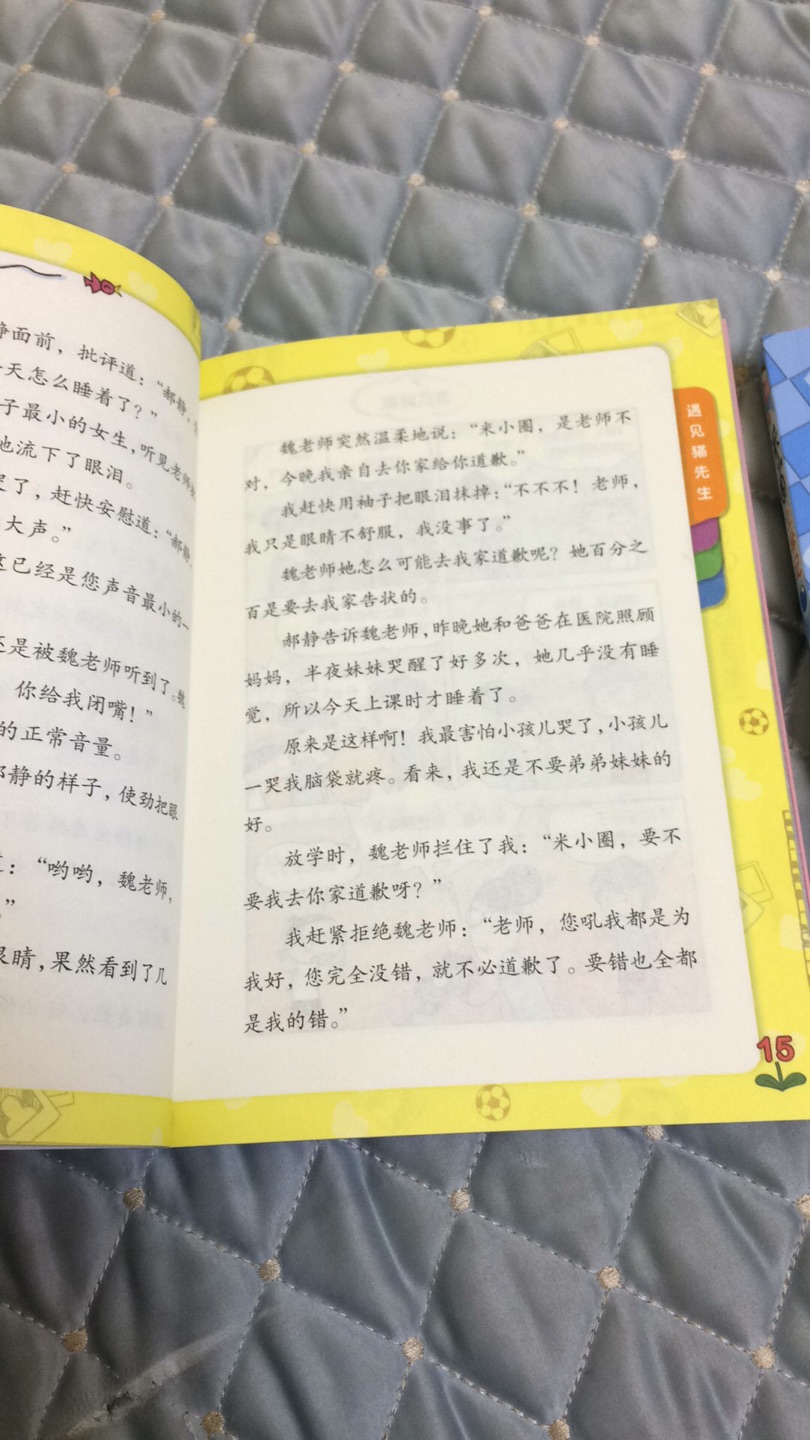 静面前，批评道：“郝静，
天怎么睡着了？”
子最小的女生，听见老师
地流下了眼泪。
哭了，赶快安慰道：“郝静，
大声。”
这已经是您声音最小的一
还是被魏老师听到了。魏
你给我闭嘴！”
的正常音量。
郝静的样子，使劲把眼
：“哟哟，魏老师，
”
眼睛，果然看到了几
魏老师突然温柔地说：“米小圈，是老师不
对，今晚我亲自去你家给你道歉。”
我赶快用袖子把眼泪抹掉：“不不不！老师，
我只是眼睛不舒服，我没事了。”
魏老师她怎么可能去我家道歉呢？她百分之
百是要去我家告状的。
郝静告诉魏老师，昨晚她和爸爸在医院照顾
妈妈，半夜妹妹哭醒了好多次，她几乎没有睡
觉，所以今天上课时才睡着了。
原来是这样啊！我最害怕小孩儿哭了，小孩儿
一哭我脑袋就疼。看来，我还是不要弟弟妹妹的
好。
放学时，魏老师拦住了我：“米小圈，要不
要我去你家道歉呀？”
我赶紧拒绝魏老师：“老师，您吼我都是为
我好，您完全没错，就不必道歉了。要错也全都
是我的错。”
遇见猫先生
15